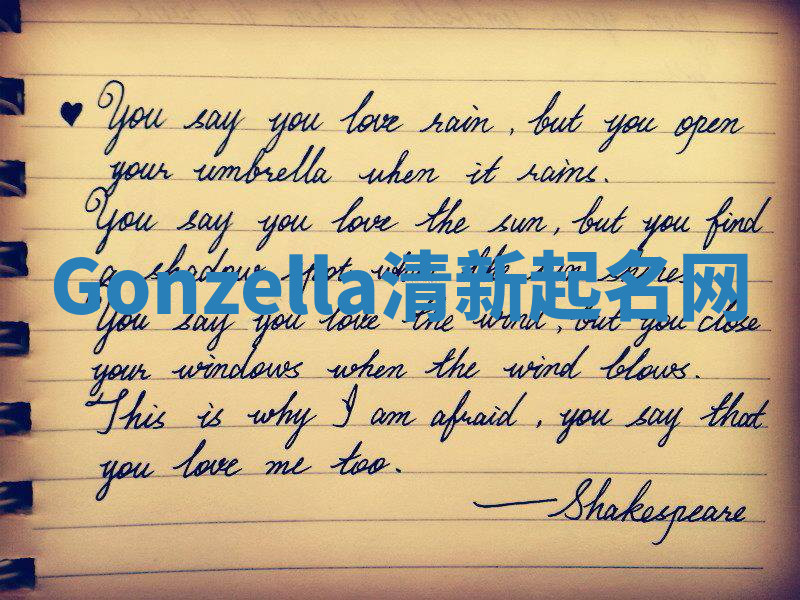 ♥ You say you love rain, but you open
your umbrella when it rains.
You say you love the sun, but you find
a shadow spot when the sun shines.
Gonzella清新起名网
You say you love the wind, but you close
your windows when the wind blows.
This is why I am afraid, you say that
you love me too.
—Shakespeare